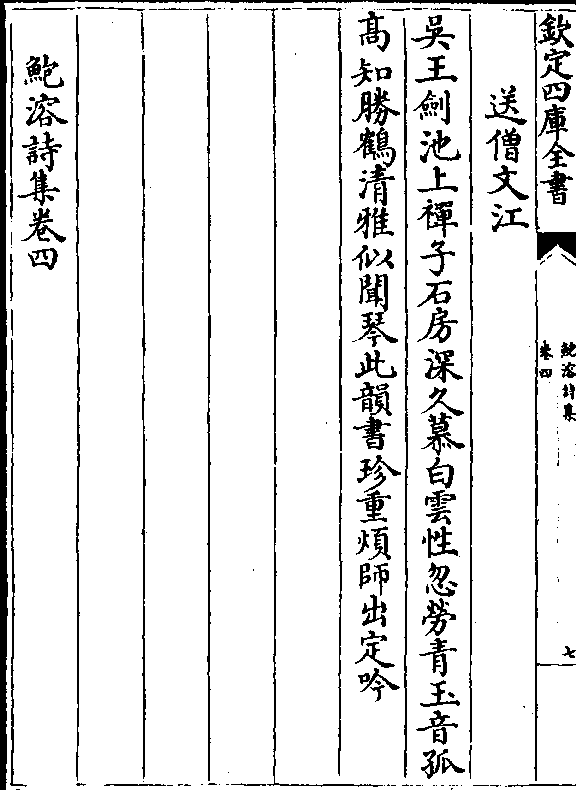 欽定四庫全書
鮑溶詩集
卷四
七
送僧文江
吳王劍池上禪子石房深久慕白雲性忽勞青玉音孤
髙知勝鶴清雅似聞琴此韻書珍重煩師出定吟
鮑溶詩集卷四